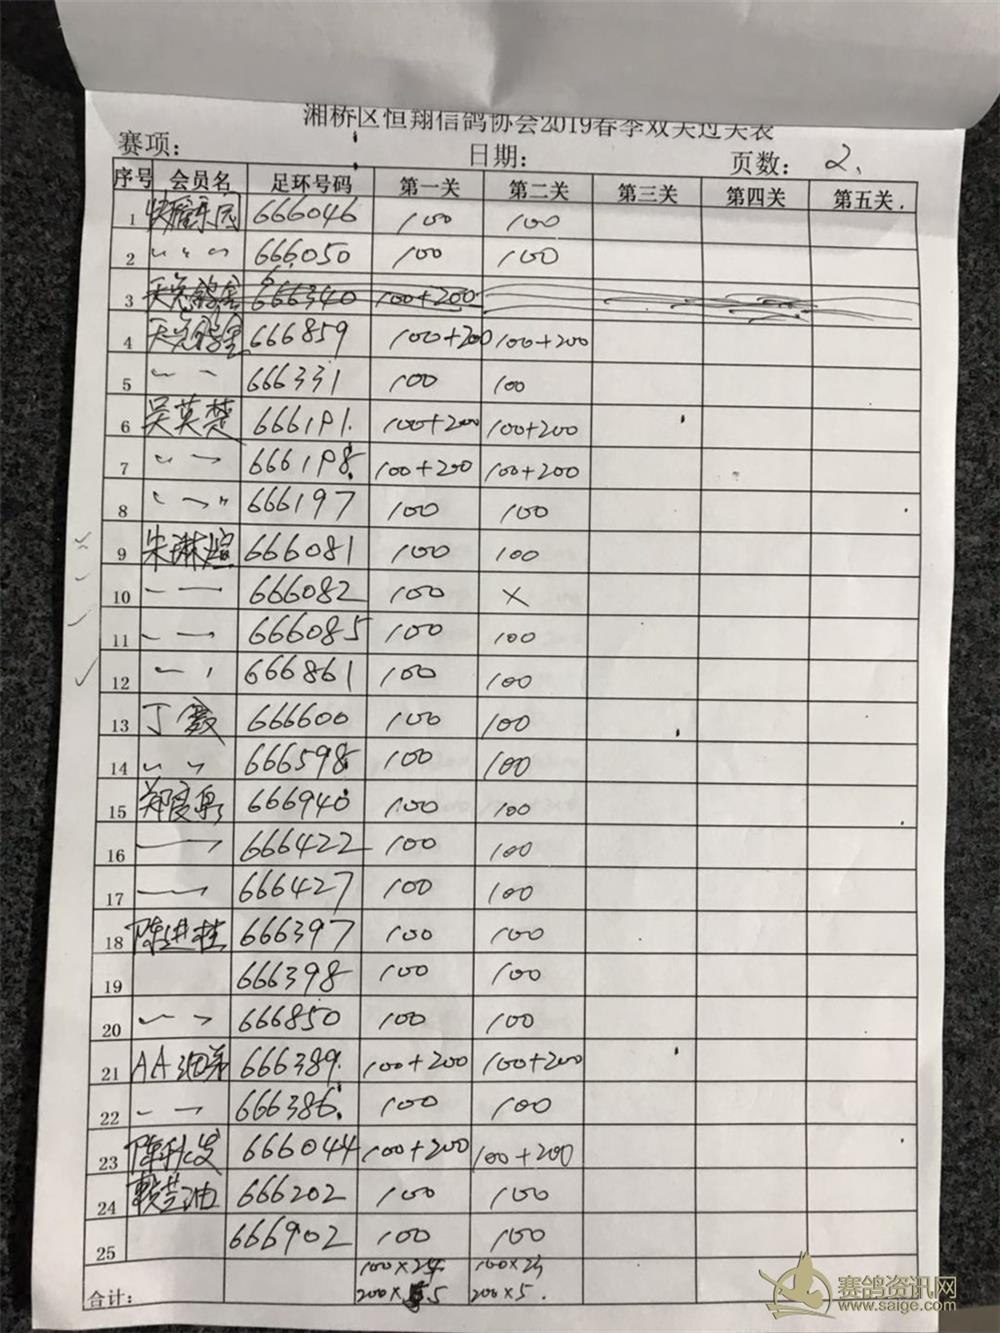 湘桥区恒翔信鸽协会2019春季双关过关表
赛项: 日期: 页数: 2、
序号 会员名 足环号码 第一关 第二关 第三关 第四关 第五关
1 乐园 666046 100 100
2 〃 〃 〃 666050 100 100
3 666340 100+200
4 666859 100+200 100+200
5 〃 〃 666331 100 100
6 吴英楚 666191 100+200 100+200
7 〃 〃 666198 100+200 100+200
8 〃 〃 〃 666197 100 100
9 朱琳煊 666081 100 100
10 〃 〃 666082 100 ×
11 〃 〃 666085 100 100
12 〃 〃 666861 100 100
13 丁 666600 100 100
14 〃 〃 666598 100 100
15 郑 666940 100 100
16 666422 100 100
17 666427 100 100
18 陈进桂 666397 100 100
19 666398 100 100
20 〃 〃 666850 100 100
21 AA 666389 100+200 100+200
22 〃 〃 666386 100 100
23 陈秋发 666044 100+200 100+200
24 赖芝油 666202 100 100
25 666902 100 100
合计: 100×24 100×23
200×5 200×5.
赛鸽资讯网
www.saige.com